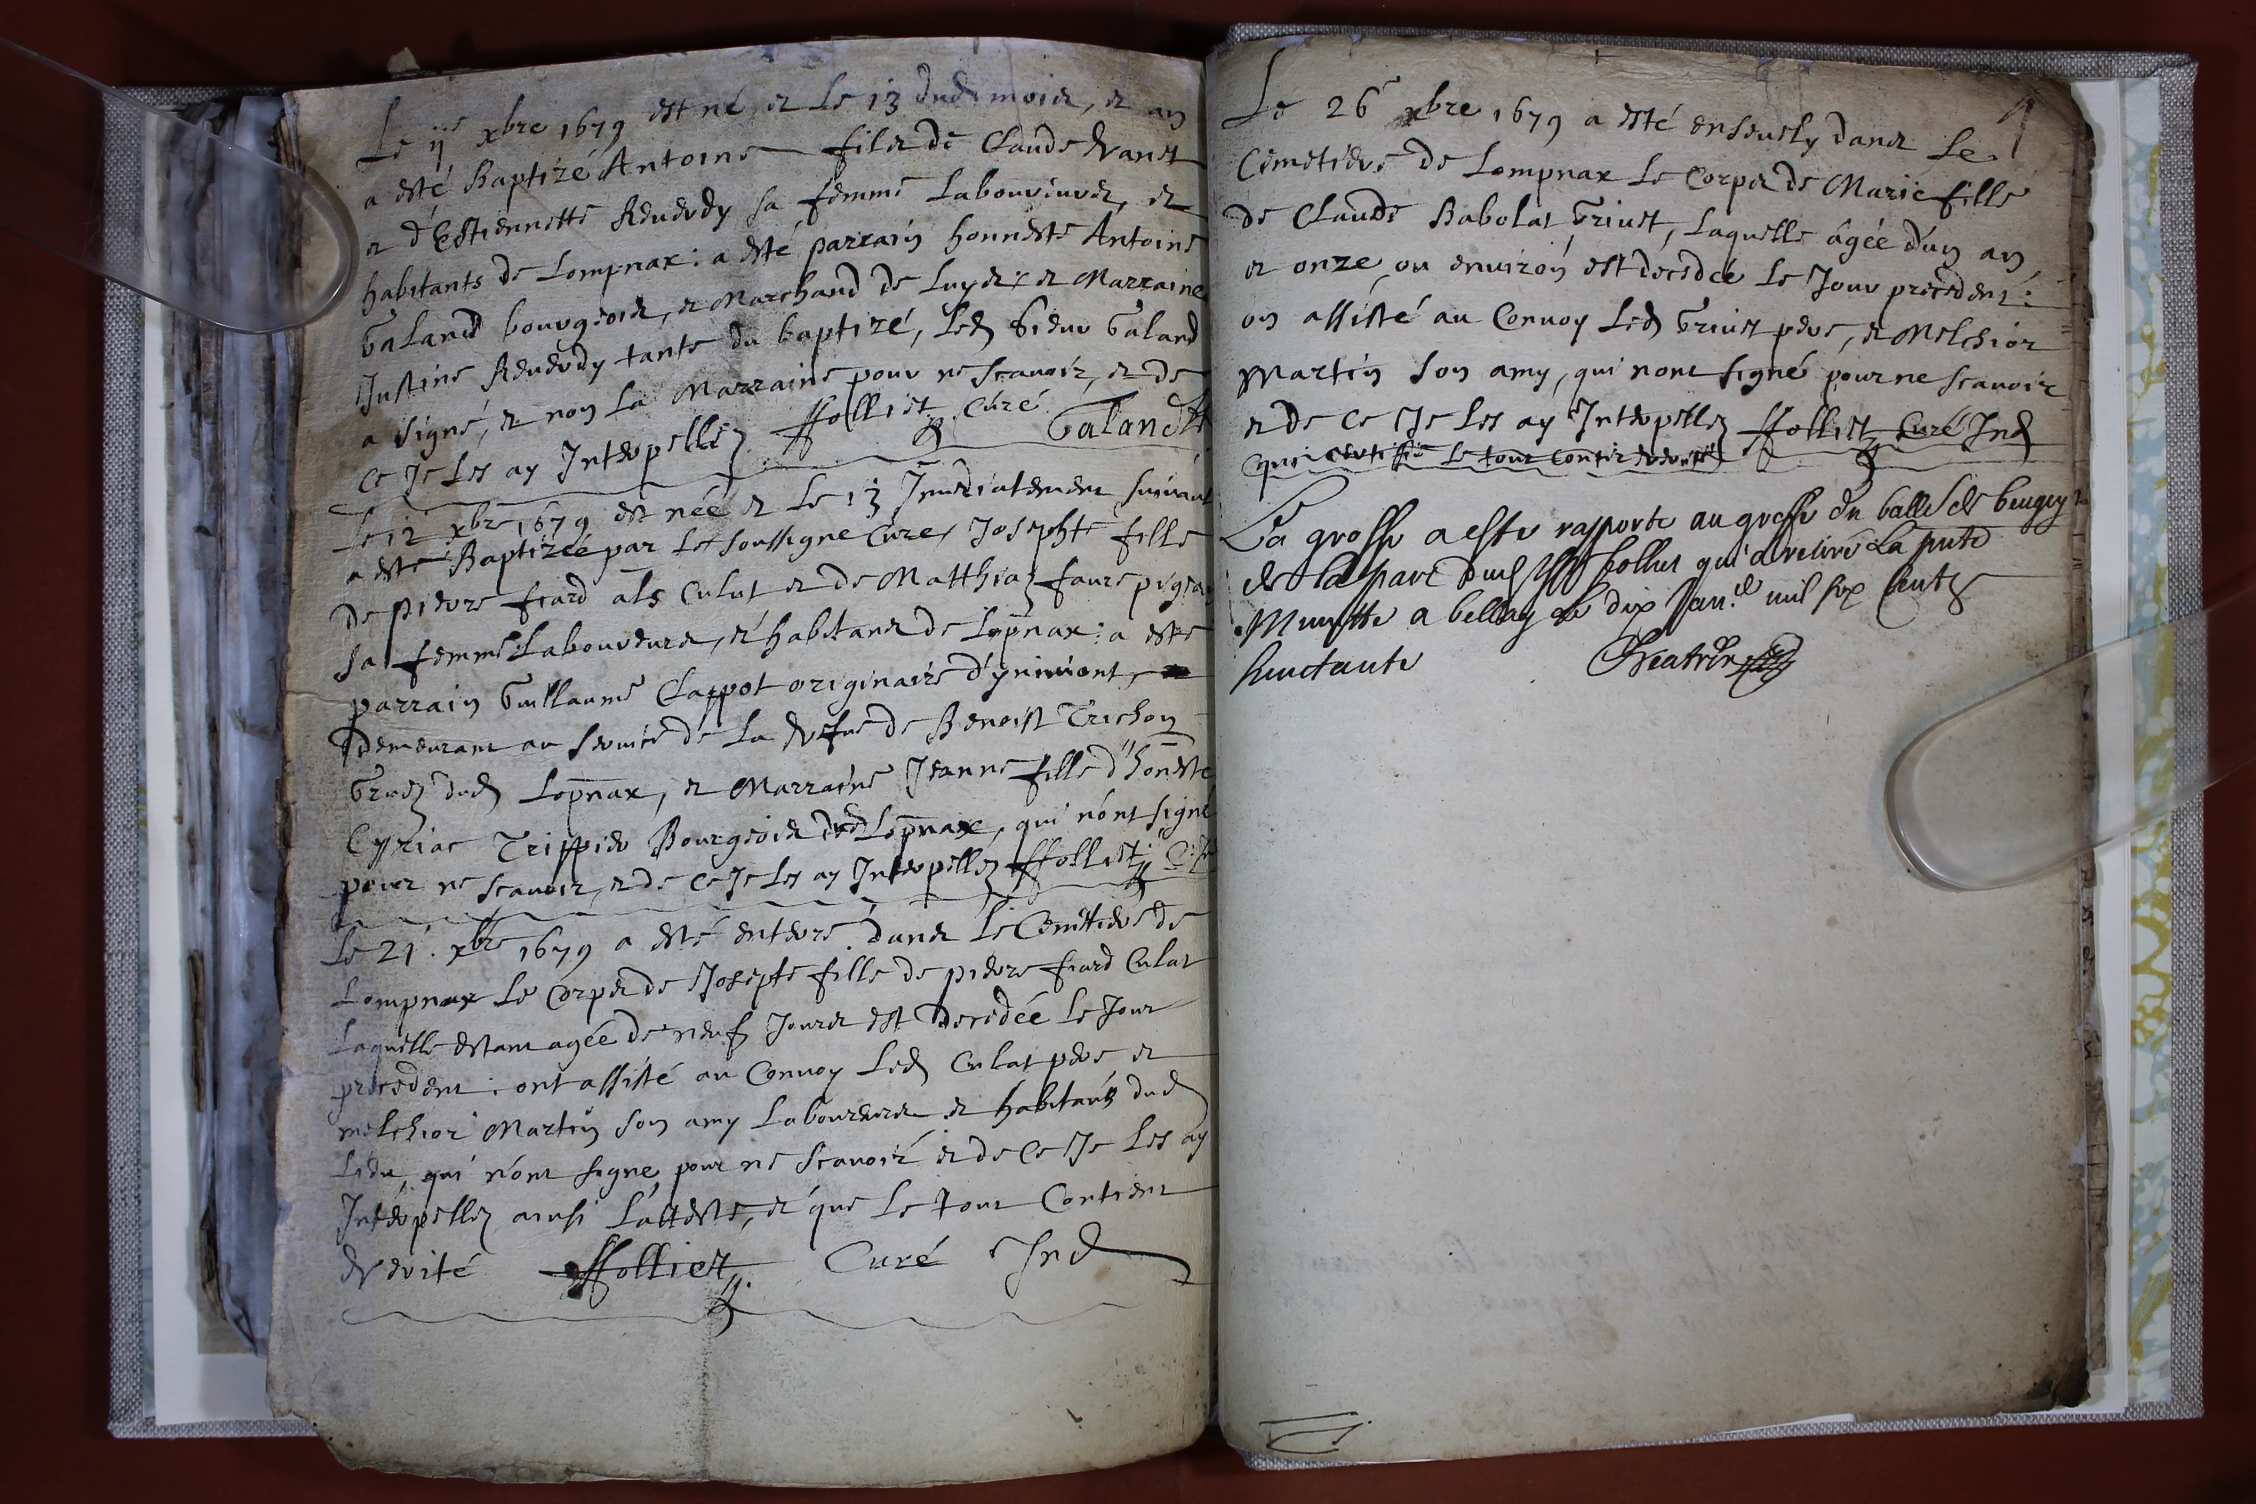 Le ije xbre 1679 est né, et le 13 dud. mois, et an
a esté Baptizé Antoine fils de Claude
et d'Estiennette Reverdy sa femme Laboureurs, et
habitants de Lompnax : a esté parrain honneste Antoine
Galand bourgeois, et Marchand de Luyes : et Marraine
Justine Reverdy tante du baptizé, led. sieur Galand
a signé, et non la Marraine pour ne scavoir, et de
ce Je les ay Interpellez ffolliet Curé Galand
Le 12 xbre 1679 est née et le 13 Imediatement suivant
a esté Baptizée par le soussigne Cure, Josephte fille
de pierre fiard als Culat et de Matthiaz favre
sa femme Laboureurs, et habitans de Lopnax : a esté
parrain Guillaume Clappot originaire d'ynimont,
demeurant au service de la vefve de Benoist Trichon
dud. Lopnax, et Marraine Jeanne fille d'honeste
Cyriac Trippier Bourgeois dud. Lopnax, qui n'ont signé
pour ne scavoir, et de ce Je les ay Interpellez ffolliet
Le 21. xbre 1679 a esté enterré dans le Cemetiere de
Lompnax le Corps de Josepte fille de pierre fiard Culat
Laquelle estant agée de neuf jours est decedée le Jour
precedent : ont assisté au Convoy led. Culat pere et
melchior Martin son amy Laboureurs et habitans dud.
Lieu, qui n'ont signe pour ne scavoir et de ce Je les ay
Interpellez ainsi l'atteste, et que le tout Contient
verité ffolliet Curé Ind.
Le 26e xbre 1679 a esté ensevely dans le
Cemetiere de Lompnax le Corps de Marie fille
de Claude Babolat Grivet, laquelle âgée d'un an
et onze, ou environ est decedée le Jour precedent :
on assisté au Convoy led. Grivet pere, et Melchior
Martin son amy, qui nont signé pour ne scavoir
et de ce Je les ay Interpellez ffolliet Curé Ind.
qui certiffie le tout contenir verité
La grosse a este rapporte au greffe du balle de beugey
de la part dud. sr folliet qui a retiré la pnte
Minutte a belley le dix Janer mil six Cents
huictante